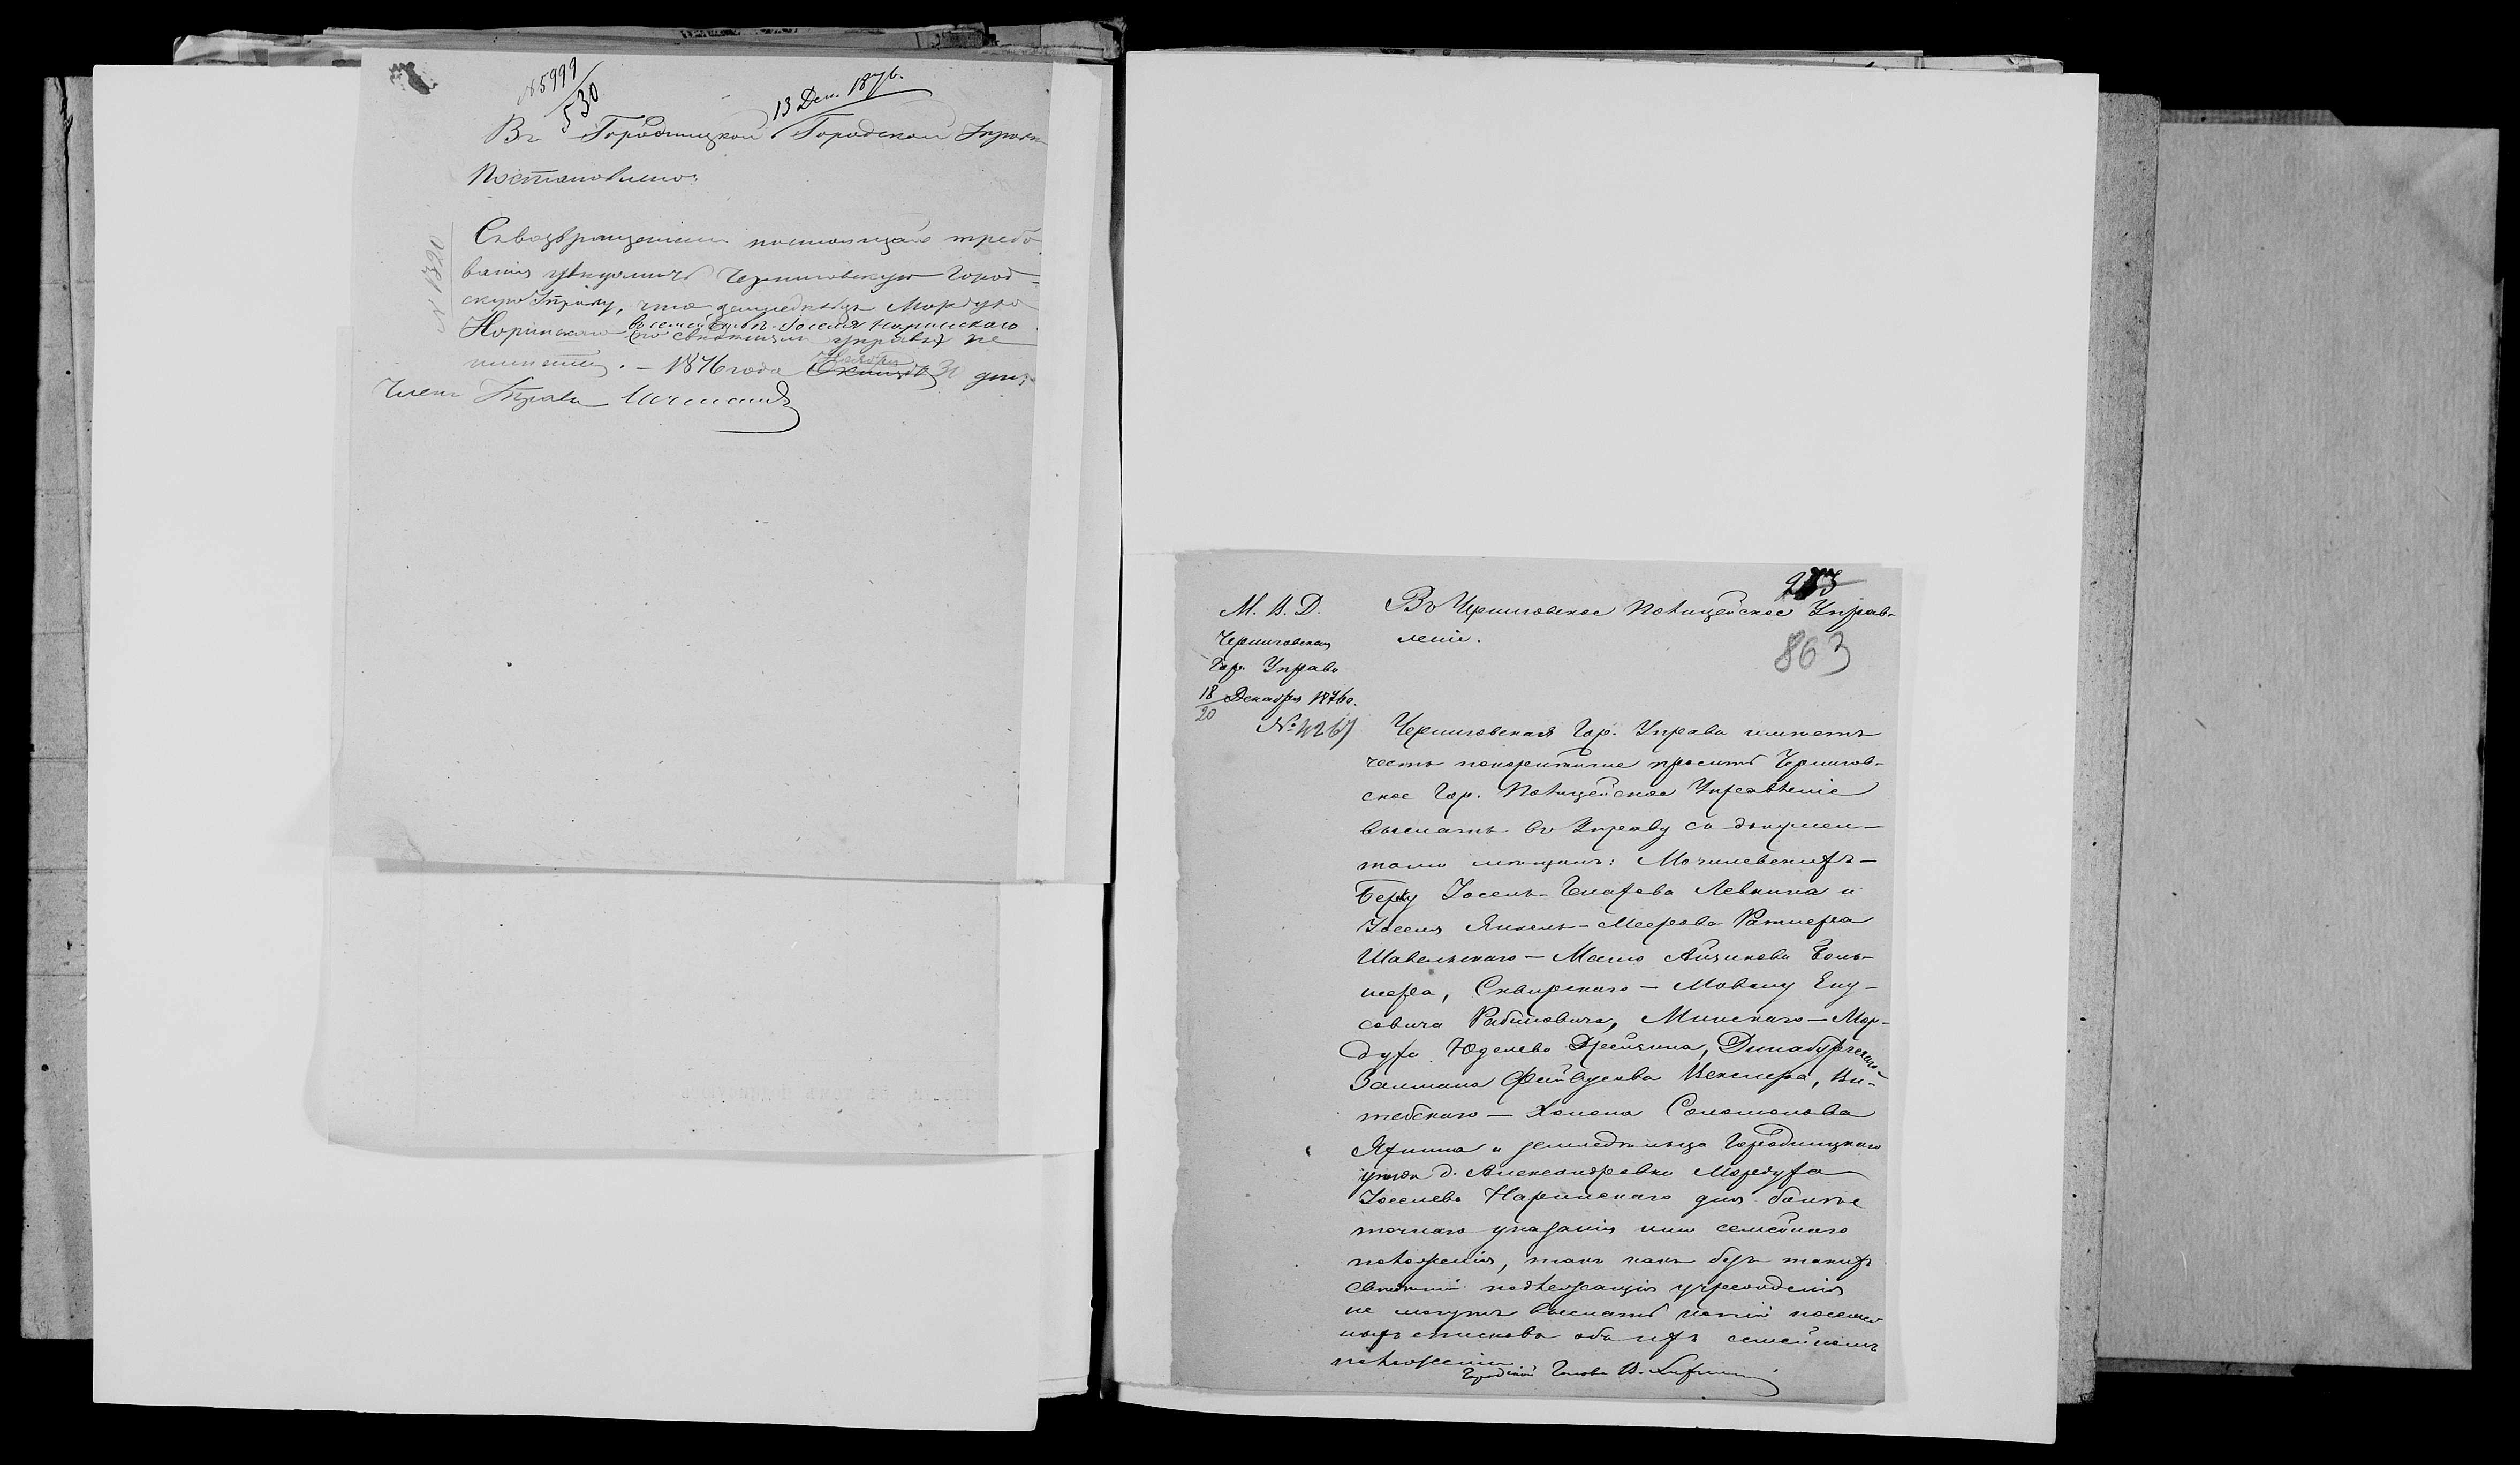 № 5999
530
13 Дек. 1876.
Въ Городницкой Городской Управѣ
Постановлено:
№ 1320
Съ возвращеніемъ настоящаго требо
ванія увѣдомить Черниговскую Город-
скую Управу, что земледѣльца Мордуха
Норинскаго въ семействѣ Іоселя Норинскаго
(по свѣдѣніямъ управы) не
имѣется. – 1876 года Ноября 30 дня.
Членъ Управы
863
М. В. Д.
Черниговская
Гор. Управа
18/20 Декабря 1876 г.
№ 4267
Въ Черниговское Полицейское Управ-
леніе.
Черниговская Гор. Управа имѣетъ
честь покорнѣйше просить Чернигов-
ское Гор. Полицейское Управленіе
выслать въ Управу съ докумен-
тами мѣщанъ: Могилевскихъ –
Берку Іосель- Левкина и
Іоселя Янкель-Меерова Ратнера
Шавельскаго – Айзикова Боль-
шера, Сквирскаго – Мовшу Ену-
совича Рабиновича, Минскаго – Мор-
духа Юделева Дрейзина, Динабургскаго
Залмана Фейвусова Векслера, Ви-
тебскаго – Хонона Соломонова
Яхнина и земледѣльца Городницкаго
уѣзда д. Александровки Мордуха
Іоселева Наринскаго для болѣе
точнаго указанія ими семейнаго
положенія, такъ какъ безъ такихъ
свѣдѣній подлежащія учрежденія
не могутъ выслать копій посемей
ныхъ списковъ объ ихъ семейномъ
положеніи.
Городской Голова В.